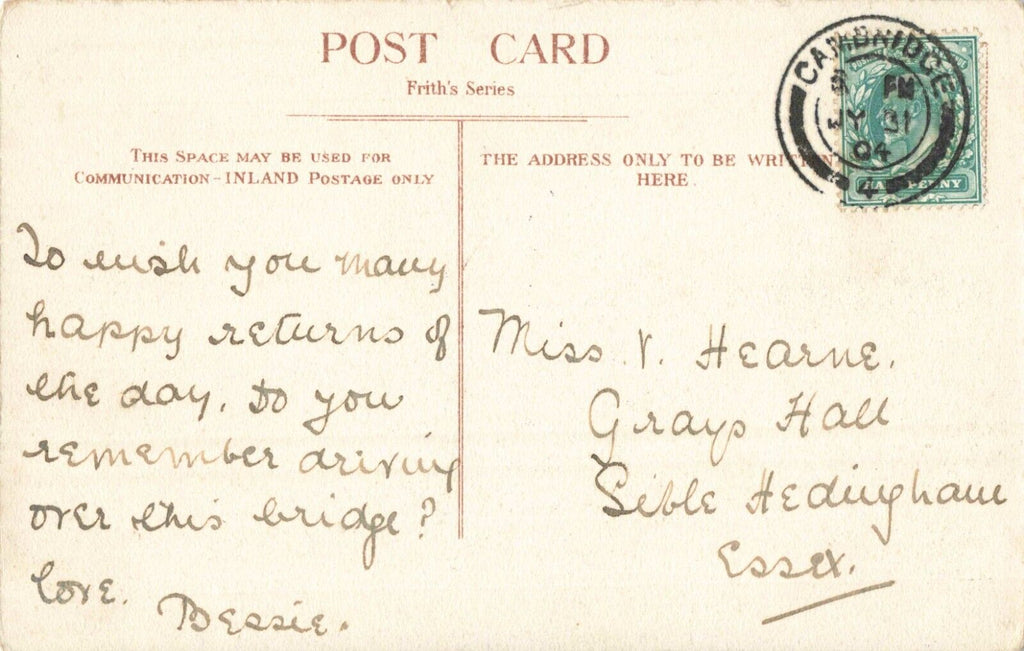 POST CARD
Frith's Series
THIS SPACE MAY BE USED FOR
COMMUNICATION-INLAND POSTAGE ONLY
THE ADDRESS ONLY TO BE WRITTEN
HERE
CAMBRIDGE
PM
JY 31
04
4
HALFPENNY
To wish you many
happy returns of
the day. Do you
remember driving
over this bridge?
love.
Bessie.
Miss V. Hearne.
Grays Hall
Sible Hedingham
Essex.